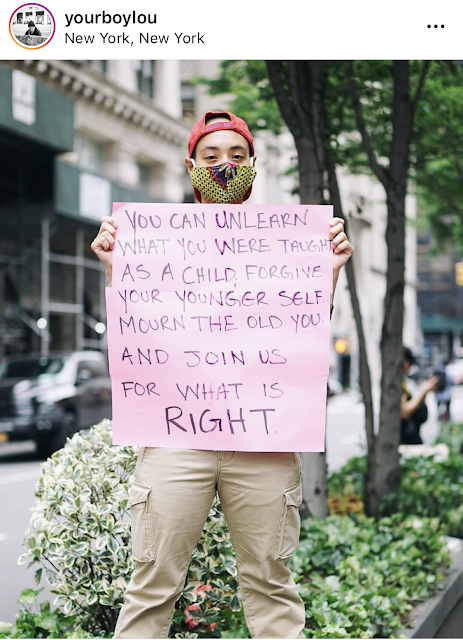 yourboylou
New York, New York
YOU CAN UNLEARN
WHAT YOU WERE TAUGHT
AS A CHILD, FORGIVE
YOUR YOUNGER SELF.
MOURN THE OLD YOU.
AND JOIN US
FOR WHAT IS
RIGHT.